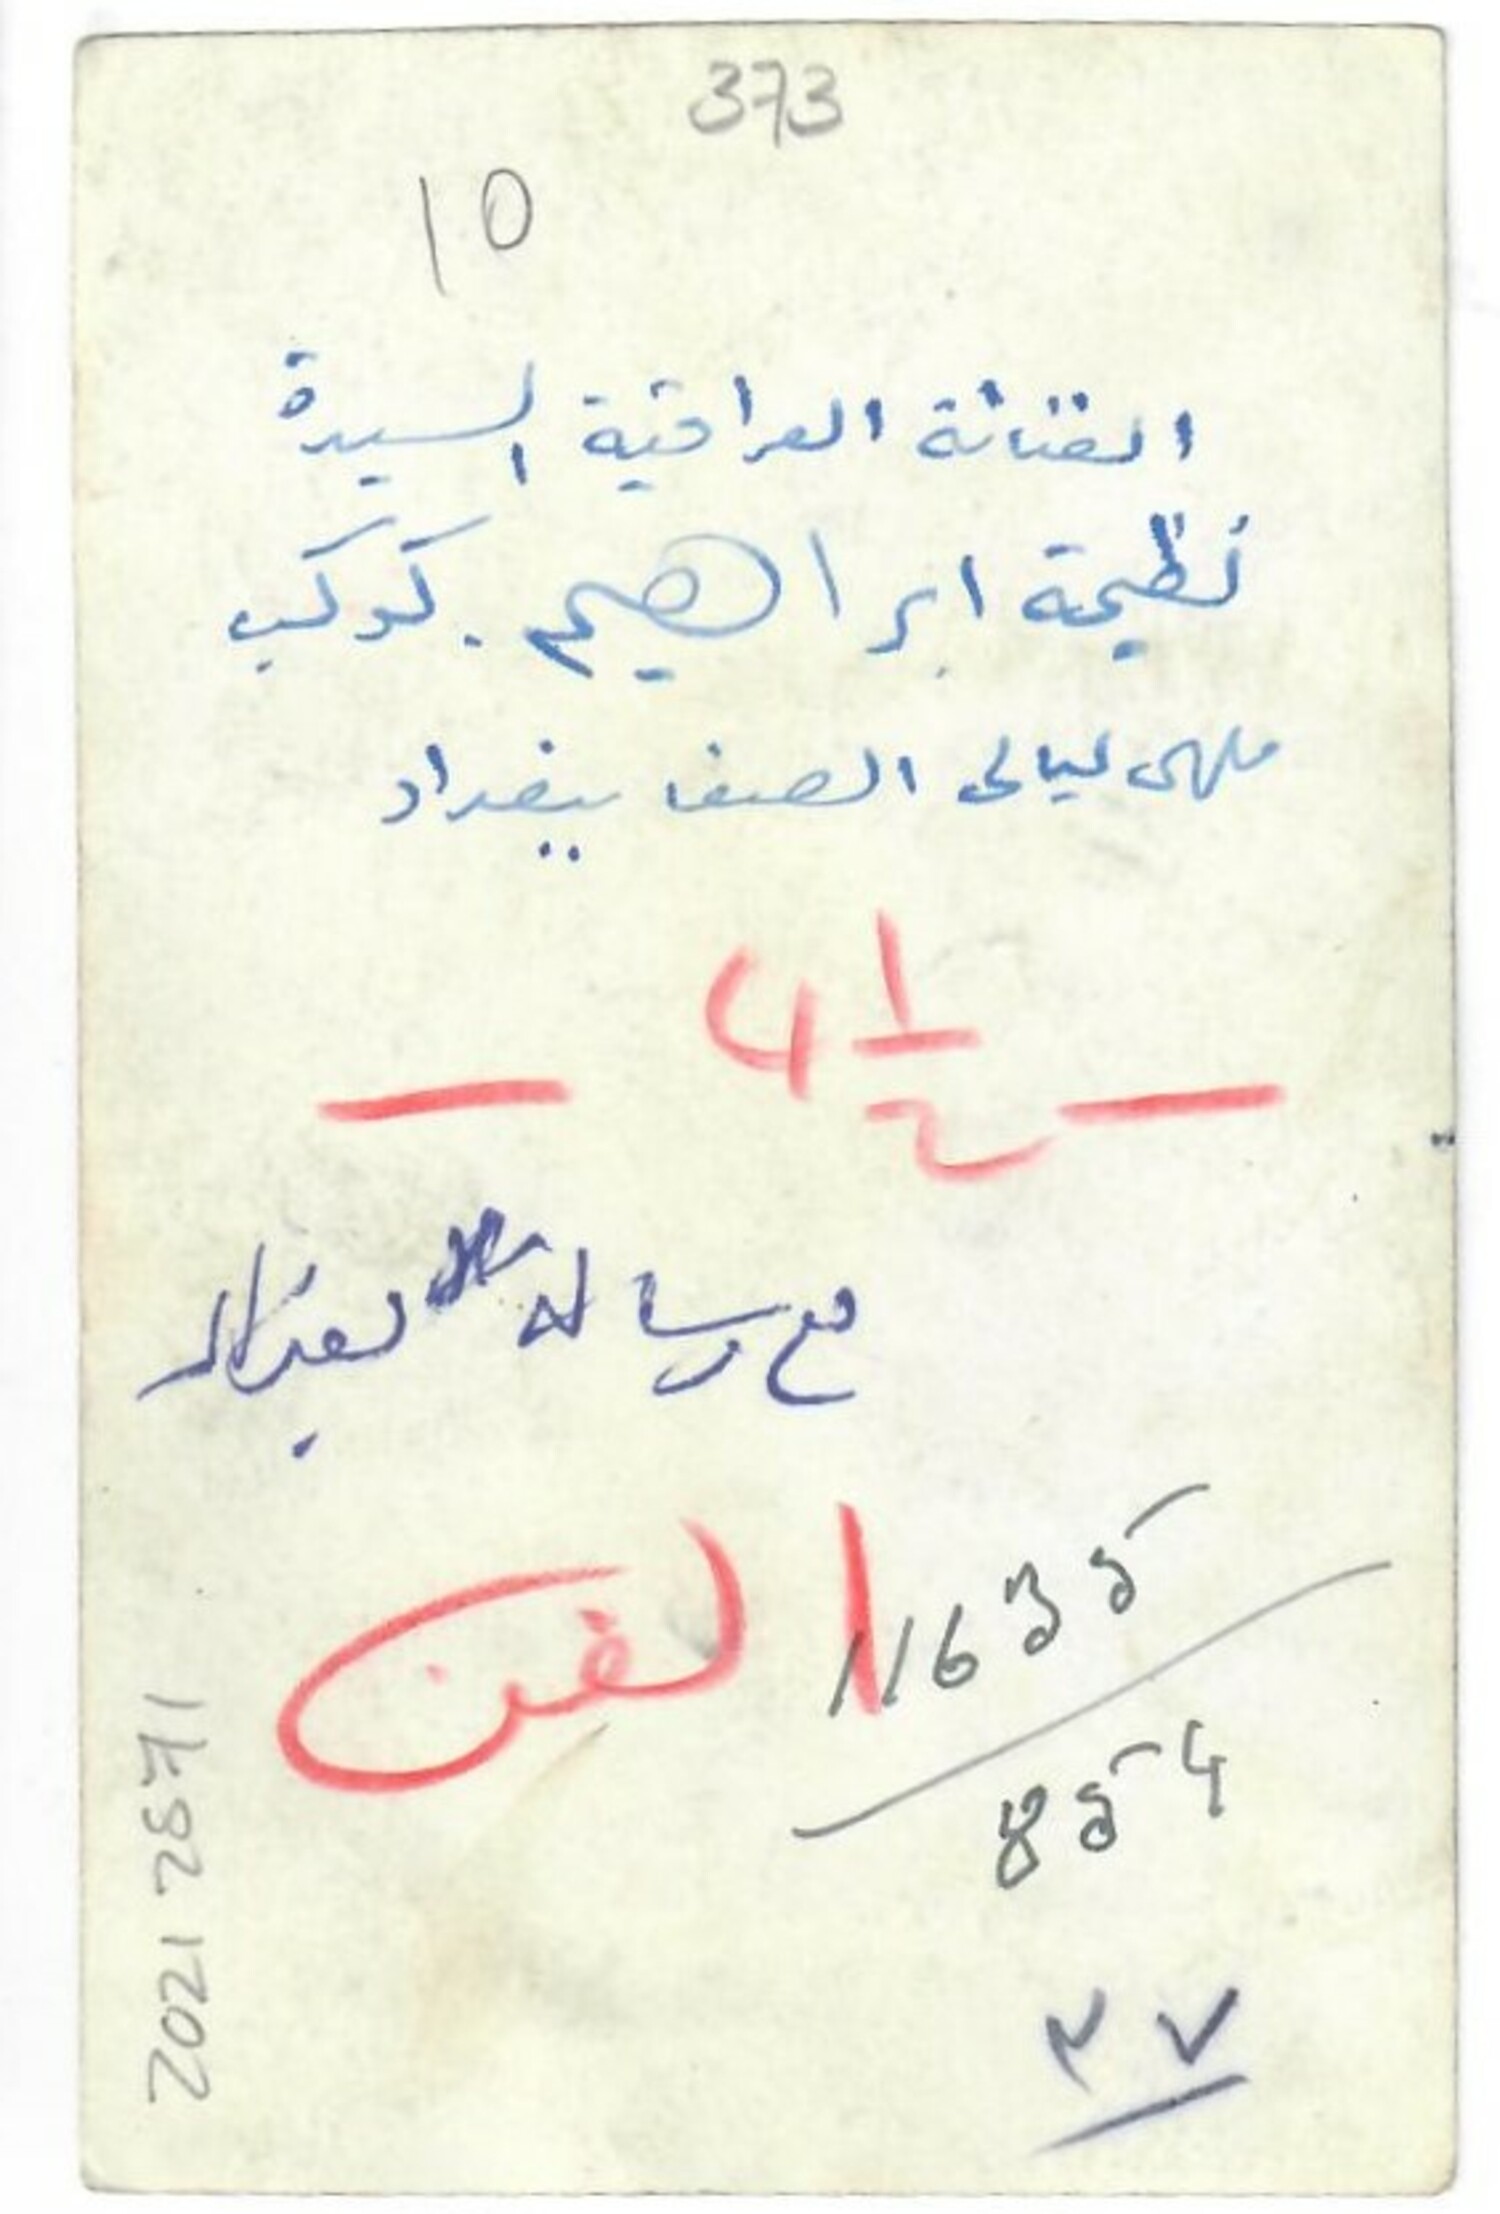 373
10
الفنانة العراقية السيدة
نظيمة ابراهيم . كوكب
ملهى ليالى الصفا ببغداد
4 1/2
مع رسالة بغداد
الفن
11635
854
٢٧
2021 2871